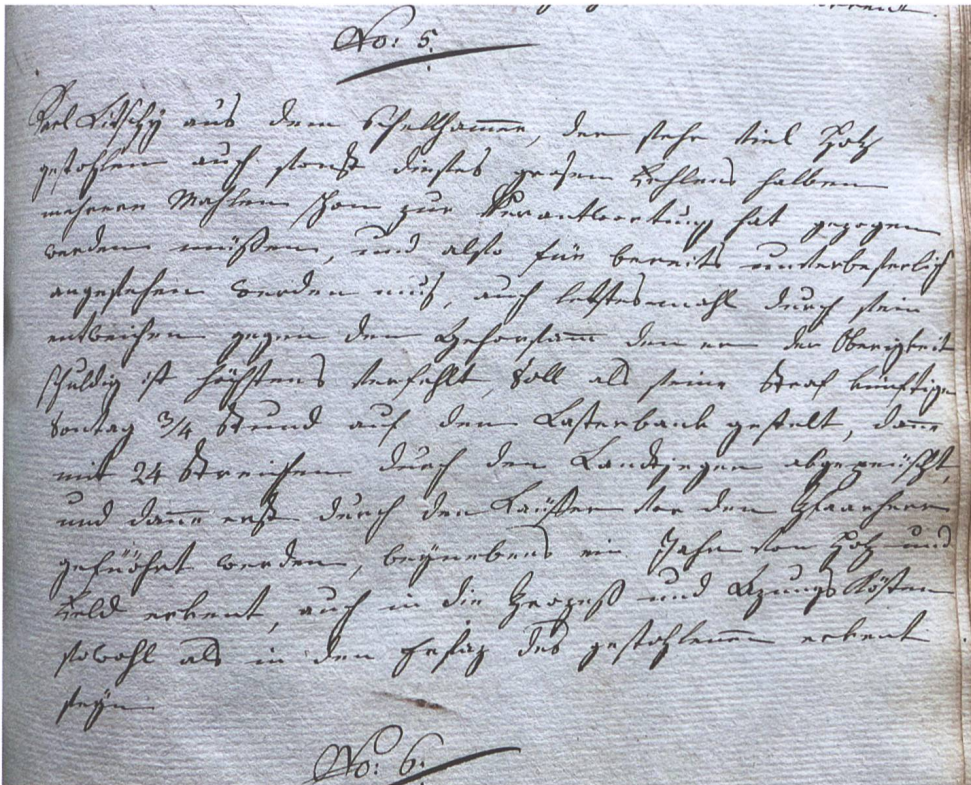 No: 5.
Karl Lütschg aus dem Schelthammer, der sehr viel Holz
gestohlen auch sonst dieses grosen Fehlers halben
mehrere Mahlen schon zur Verantwortung hat gezogen
werden müßen, und also für bereits unverbeserlich
angesehen werden muß, auch letstesmahl durch sein
entweichen gegen dem Gehorsamm den er der Oberigkeit
schuldig ist höchstens verfehlt, soll als seine Straf künftigen
Sontag 3/4 Stund auf den Lasterbank gestelt, dann
mit 24 Streichen durch den Landjegen abgepeitscht,
und dann erst durch den Läuffer vor den Pfaarherr
gefüöhrt werden, beynebens ein Jahr von Holz und
Feld erkent, auch in die Prozeß und Azungs Kösten
sowohl als in den Ersaz des gestohlenen erkent
seyn
No: 6.